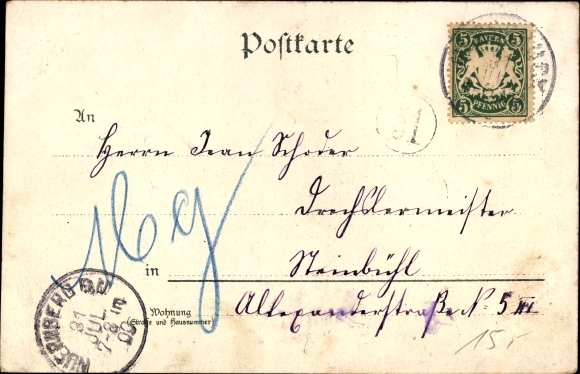 Postkarte
5 BAYERN 5
5 PFENNIG 5
An
Herrn Jean Schoder
Drechslermeister
in Steinbühl
Wohnung
(Straße und Hausnummer)
Allexanderstraße N. 5 III
Mg
NUERNBERG
31
JUL
7-8
00
15.-